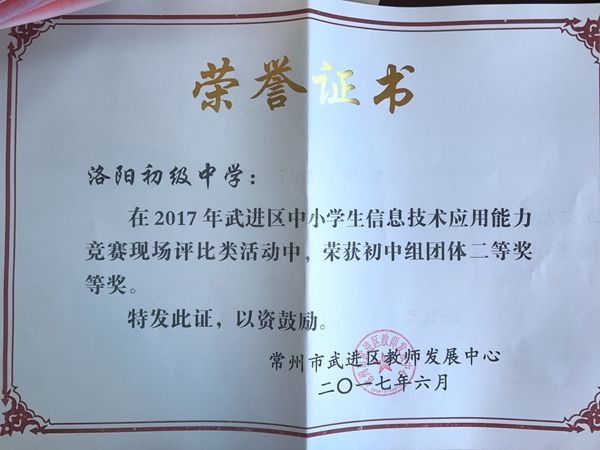 荣誉证书
洛阳初级中学：
在2017年武进区中小学生信息技术应用能力
竞赛现场评比类活动中，荣获初中组团体二等奖
等奖。
特发此证，以资鼓励。
常州市武进区教师发展中心
二〇一七年六月